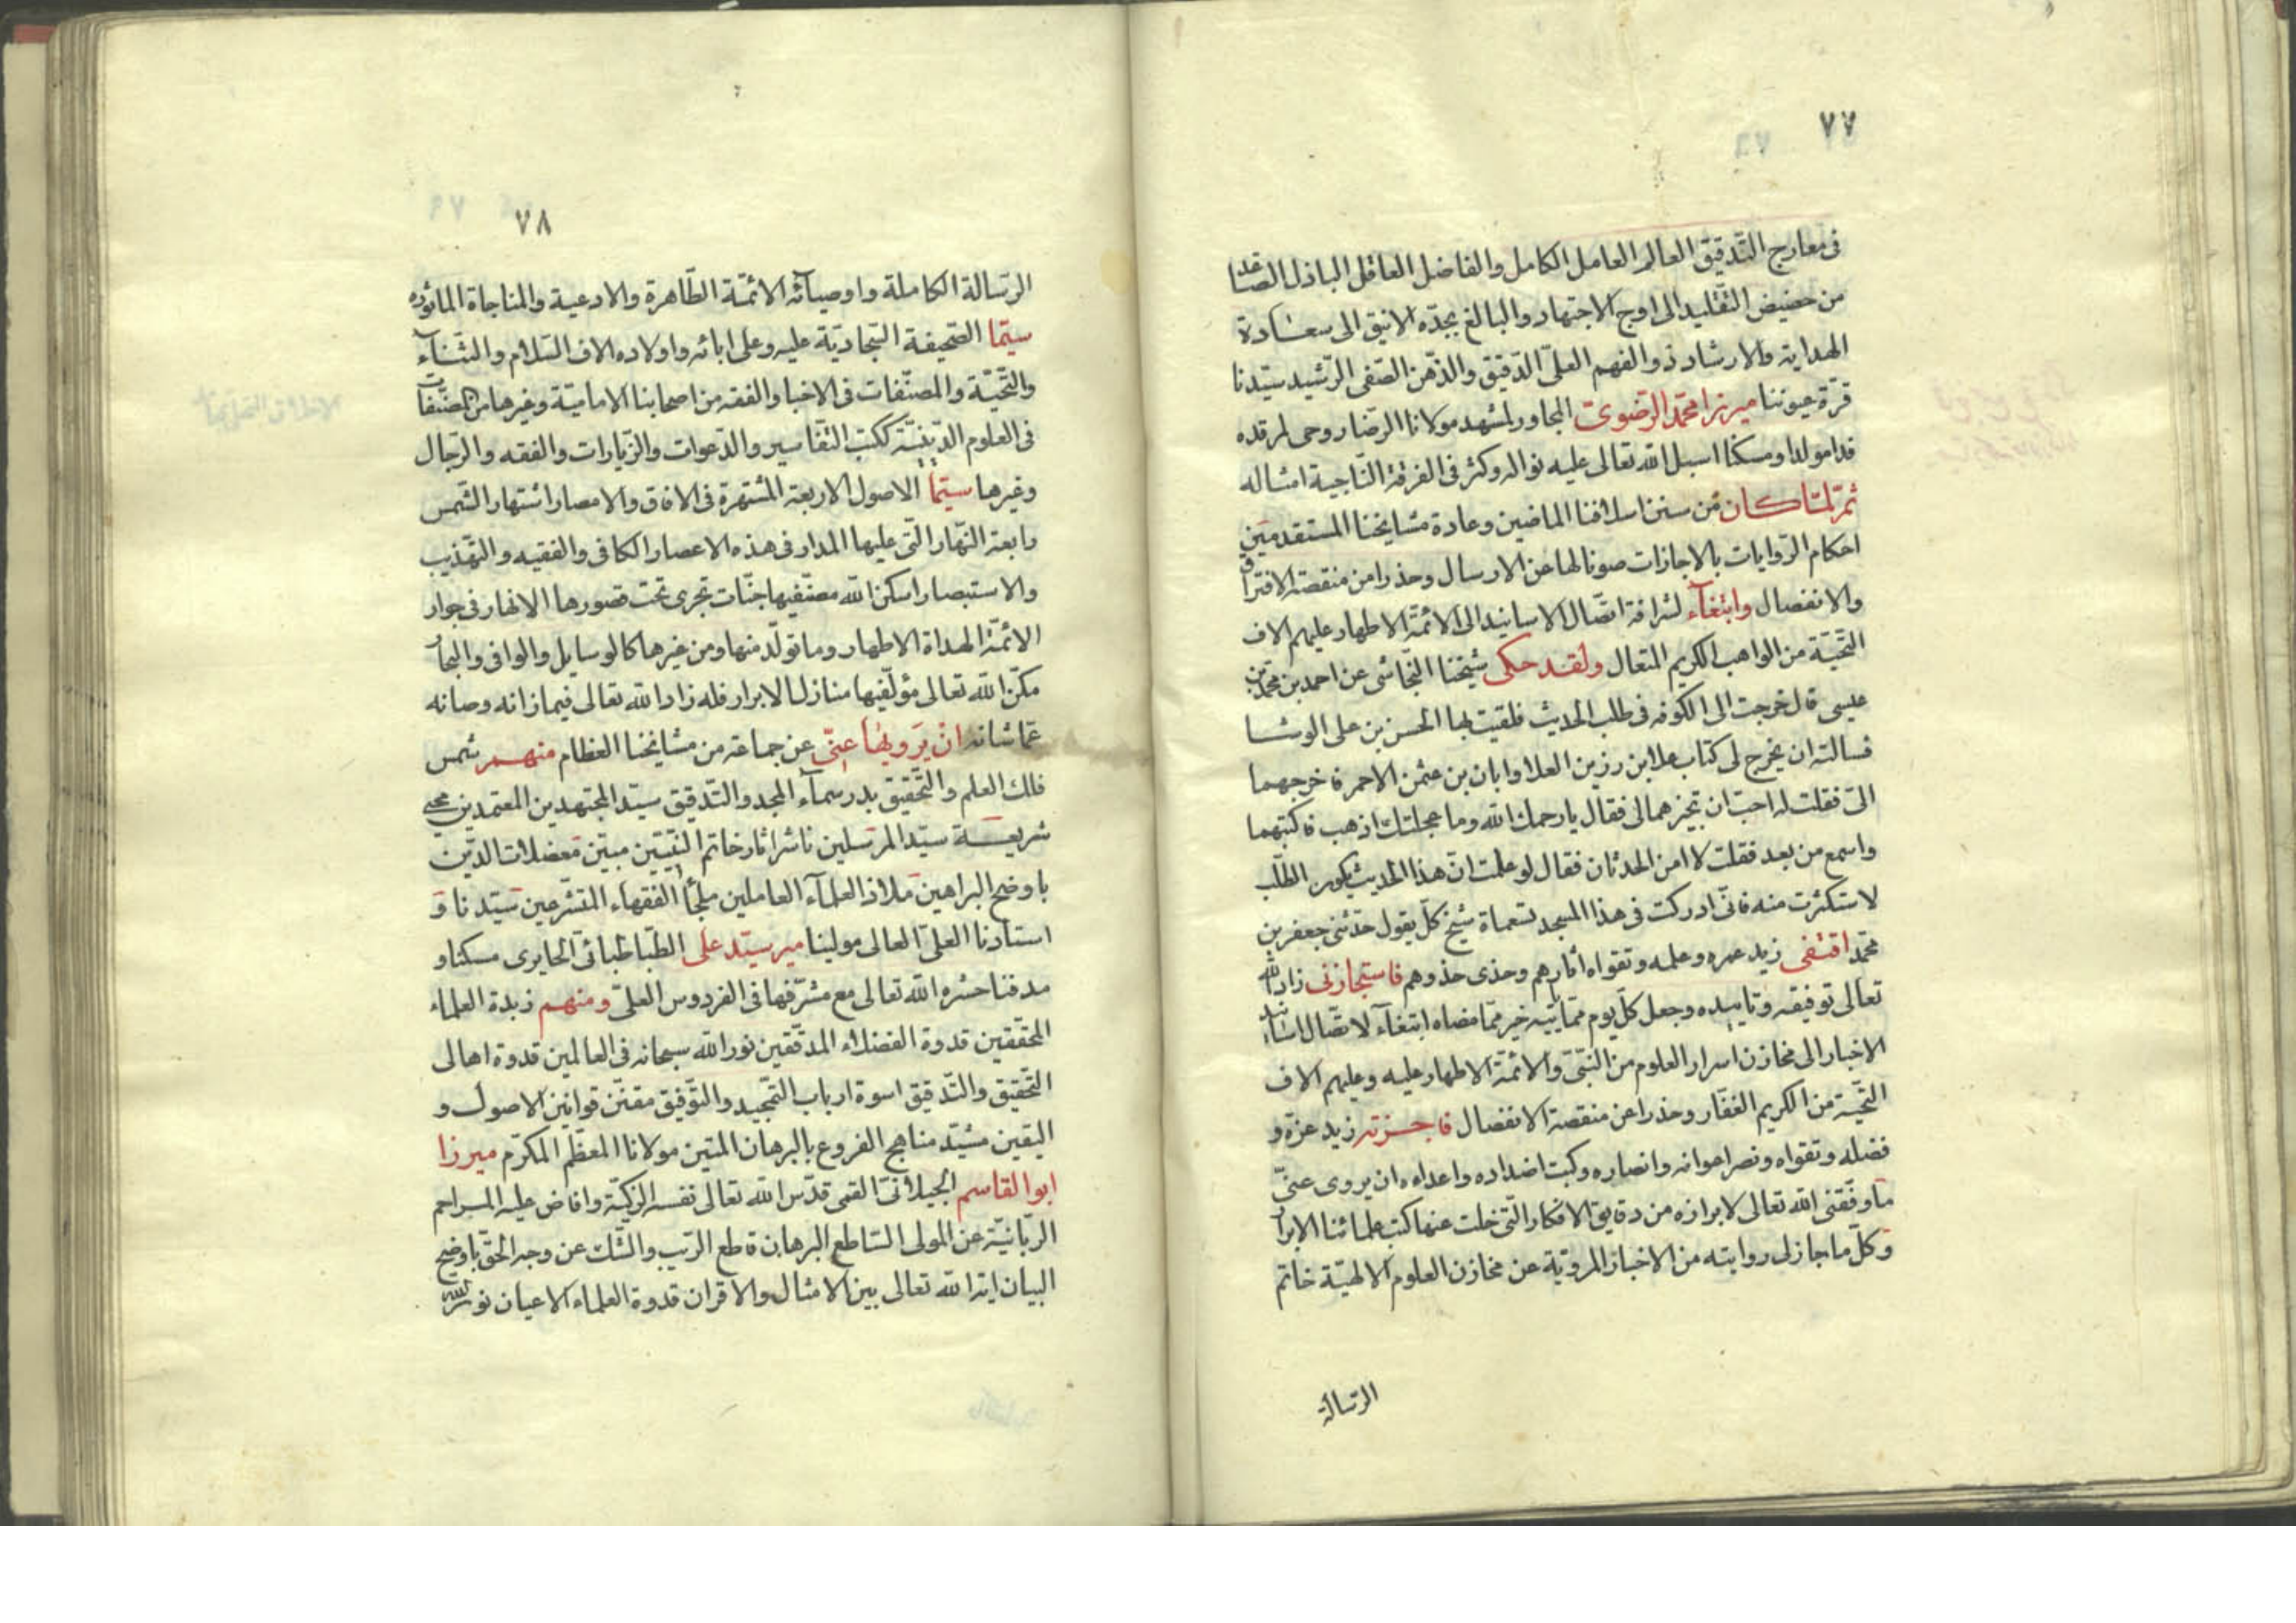 ٧٧
فى معارج التّدقيق العالم العامل الكامل والفاضل العاقل الباذل الصاعد
من حضيض التّقليد الى اوج الاجتهاد والبالغ بجدّه الانيق الى سعادة
الهداية والارشاد ذو الفهم العلىّ الدّقيق والذّهن الصّفى الرّشيد سيّدنا
قرّة عيوننا ميرزا محمّد الرّضوىّ المجاور لمشهد مولانا الرّضا روحى لمرقده
فدا مولدا ومسكنا اسبل الله تعالى عليه نواله وكثر فى الفرقة النّاجية امثاله
ثمّ لمّا كان من سنن اسلافنا الماضين وعادة مشايخنا المستقدمين
احكام الرّوايات بالاجازات صونا لها عن الارسال وحذرا من منقصة الافتراق
والانفصال وابتغآء لشرافة اتّصال الاسانيد الى الائمّة الاطهار عليهم الاف
التّحيّة من الواهب الكريم المتعال ولقد حكى شيخنا النّجاشى عن احمد بن محمّد بن
عيسى قال خرجت الى الكوفه فى طلب الحديث فلقيت بها الحسن بن على الوشا
فسالته ان يخرج لى كتاب علا بن رزين العلا وابان بن عثمن الاحمر فاخرجهما
الىّ فقلت له احبّ ان تجيزهما لى فقال يا رحمك الله وما عجلتك اذهب فاكتبهما
واسمع من بعد فقلت لا امن الحدثان فقال لو علمت انّ هذا الحديث يكون الطّلب
لاستكثرت منه فانّى ادركت فى هذا المسجد تسعماة شيخ كلّ يقول حدّثنى جعفر بن
محمّد اقتفى زيد عمره وعلمه وتقواه اثارهم وحذى حذوهم فاستجازنى زاد الله
تعالى توفيقه وتاييده وجعل كلّ يوم ممّا يتيه خير ممّا مضاه ابتغآء لاتّصال اسانيد
الاخبار الى مخازن اسرار العلوم من النّبىّ والائمّة الاطهار عليه وعليهم الاف
التّحيّة من الكريم الغفّار وحذرا عن منقصة الانفصال فاجزته زيد عزّه و
فضله وتقواه ونصر اعوانه وانصاره وكبت اضداده واعداه ان يروى عنىّ
ما وفّقنى الله تعالى لابرازه من دقايق الافكار الّتى خلت عنها كتب علمائنا الابرار
وكلّ ما جاز لى روايته من الاخبار المرويّة عن مخازن العلوم الالهيّة خاتم
الرّسالة
٧٨
الرّسالة الكاملة واوصيآئه الائمّة الطّاهرة والادعية والمناجاة الماثوره
سيّما الصّحيفة السّجاديّة عليه وعلى ابائه واولاده الاف السّلام والثّنآء
والتّحيّة والمصنّفات فى الاخبار والفقه من اصحابنا الاماميّة وغيرها من المصنّفات
فى العلوم الدّينيّة ككتب التّفاسير والدّعوات والزّيارات والفقه والرّجال
وغيرها سيّما الاصول الاربعة المشتهرة فى الافاق والامصار اشتهار الشّمس
رابعة النّهار الّتى عليها المدار فى هذه الاعصار الكافى والفقيه والتّهذيب
والاستبصار اسكن الله مصنّفيها جنّات تجرى تحت قصورها الانهار فى جوار
الائمّة الهداة الاطهار وما تولّد منها ومن غيرها كالوسايل والوافى والبحار
مكّن الله تعالى مؤلّفيها منازل الابرار فله زاد الله تعالى فيما زانه وصانه
عمّا شانه ان يرويها عنّى عن جماعة من مشايخنا العظام منهم شمس
فلك العلم والتّحقيق بدر سمآء المجد والتّدقيق سيّد المجتهدين المعتمدين محيى
شريعة سيّد المرسلين ناشر اثار خاتم النّبيّين مبيّن معضلات الدّين
باوضح البراهين ملاذ العلمآء العاملين ملجأ الفقهاء المتشرّعين سيّدنا و
استادنا العلىّ العالى مولينا مير سيّد على الطّباطبائى الحايرى مسكنا و
مدفنا حشره الله تعالى مع مشرّفها فى الفردوس العلىّ ومنهم زبدة العلماء
المحقّقين قدوة الفضلاء المدقّقين نور الله سبحانه فى العالمين قدوة اهالى
التّحقيق والتّدقيق اسوة ارباب التّمجيد والتّوفيق مقنّن قوانين الاصول و
اليقين مشيّد مناهج الفروع بالبرهان المتين مولانا المعظّم المكرّم ميرزا
ابو القاسم الجيلانىّ القمى قدّس الله تعالى نفسه الزكيّة وافاض عليه المراحم
الرّبّانيّة عن المولى السّاطع البرهان قاطع الرّيب والشّك عن وجه الحقّ باوضح
البيان اية الله تعالى بين الامثال والاقران قدوة العلماء الاعيان نور الله